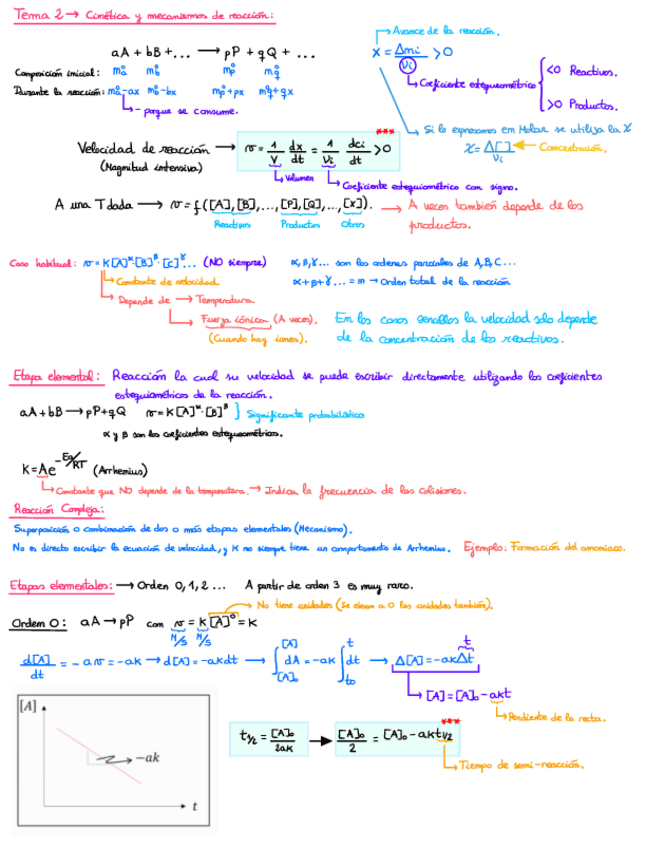 Tema 2 → Cinética y mecanismos de reacción:
→ Avance de la reacción.
aA + bB + ... → pP + qQ + ...
x = Δni / νi > 0
Composición inicial: n°a n°b n°p n°q
→ Coeficiente estequiométrico { <0 Reactivos. >0 Productos.
Durante la reacción: n°a-ax n°b-bx n°p+px n°q+qx
→ - porque se consume.
→ Si lo expresamos en Molar se utiliza la X
X = Δ[ ] / νi ← Concentración.
Velocidad de reacción → v = 1/V dx/dt = 1/νi dci/dt > 0 ***
(Magnitud intensiva)
→ Volumen
→ Coeficiente estequiométrico con signo.
A una T dada → v = f([A],[B],...,[P],[Q],...,[X]). → A veces también depende de los productos.
Reactivos Productos Otros
Caso habitual: v = K[A]^α·[B]^β·[C]^γ... (NO siempre) α,β,γ... son los ordenes parciales de A,B,C...
→ Constante de velocidad α+β+γ... = m → Orden total de la reacción
→ Depende de → Temperatura
→ Fuerza iónica (A veces). En los casos sencillos la velocidad solo depende
(Cuando hay iones). de la concentración de los reactivos.
Etapa elemental: Reacción la cual su velocidad se puede escribir directamente utilizando los coeficientes
estequiométricos de la reacción.
aA+bB → pP+qQ v = K[A]^α·[B]^β } Significante probabilístico
α y β son los coeficientes estequiométricos.
K = Ae^-Ea/RT (Arrhenius)
→ Constante que NO depende de la temperatura. → Indica la frecuencia de las colisiones.
Reacción Compleja:
Superposición o combinación de dos o más etapas elementales (Mecanismo).
No es directo escribir la ecuación de velocidad, y K no siempre tiene un comportamiento de Arrhenius. Ejemplo: Formación del amoniaco.
Etapas elementales: → Orden 0, 1, 2 ... A partir de orden 3 es muy raro.
→ No tiene unidades (Se elevan a 0 las unidades también).
Orden 0: aA → pP con v = K[A]^0 = K
M/s M/s
d[A]/dt = -av = -ak → d[A] = -akdt → ∫[A]₀^[A] dA = -ak ∫t₀^t dt → Δ[A] = -akΔt
t
→ [A] = [A]₀ - akt
→ Pendiente de la recta.
[A]
-ak
t
t½ = [A]₀ / 2ak → [A]₀/2 = [A]₀ - akt½ ***
→ Tiempo de semi-reacción.